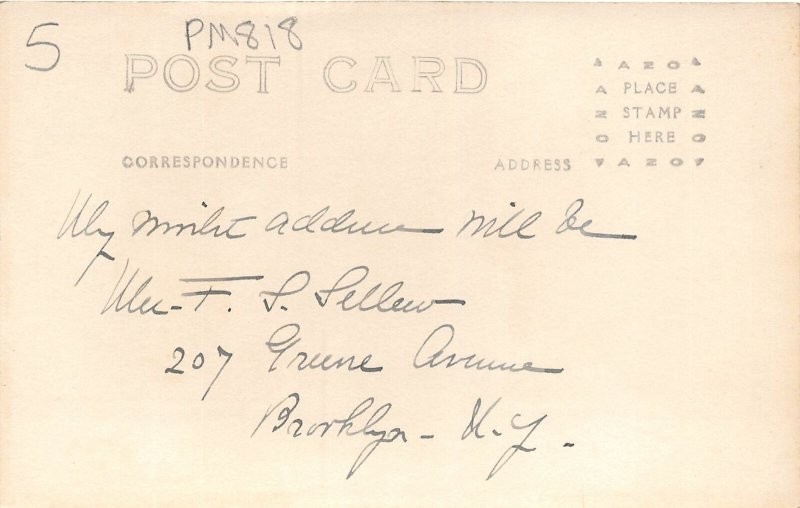 5
PM818
POST CARD
AZO
PLACE
STAMP
HERE
AZO
CORRESPONDENCE
ADDRESS
My address will be
F. S. Sellew
207 Greene Avenue
Brooklyn - N. Y.